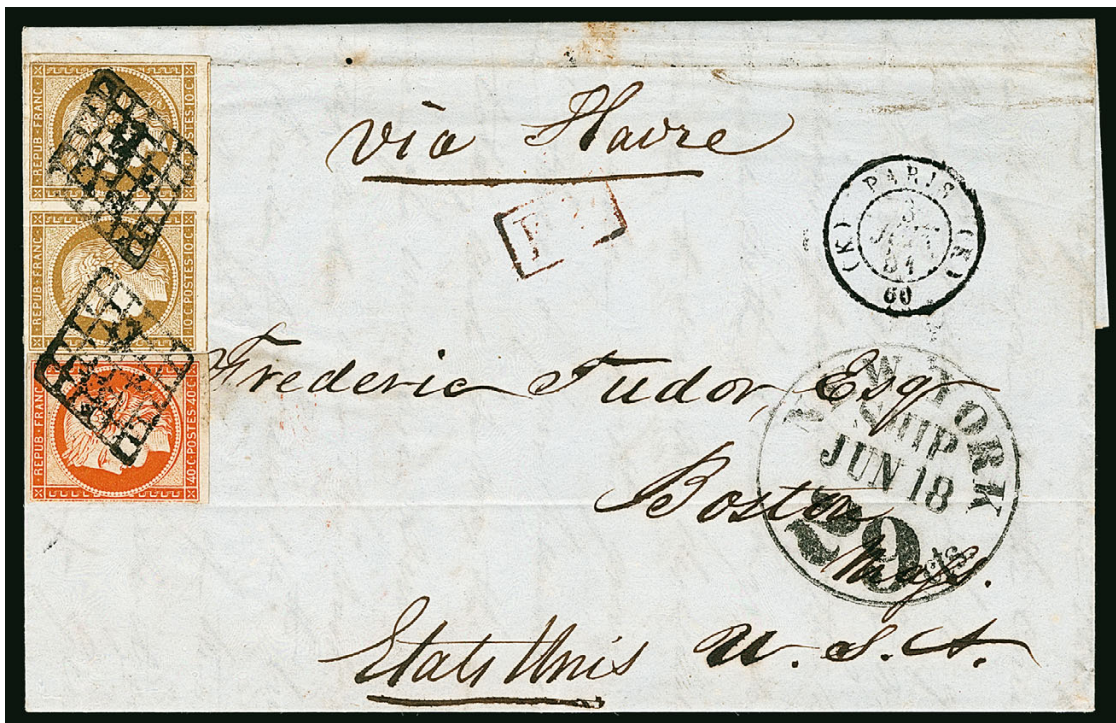 REPUB·FRANC
10·C·POSTES·10·C
REPUB·FRANC
10·C·POSTES·10·C
REPUB·FRANC
40·C·POSTES·40·C
via Havre
PARIS
(K) (K)
60
Frederic Tudor, Esqr
NEW YORK
SHIP
JUN 18
20
cts
Boston
Mass.
Etats Unis U.S.A.